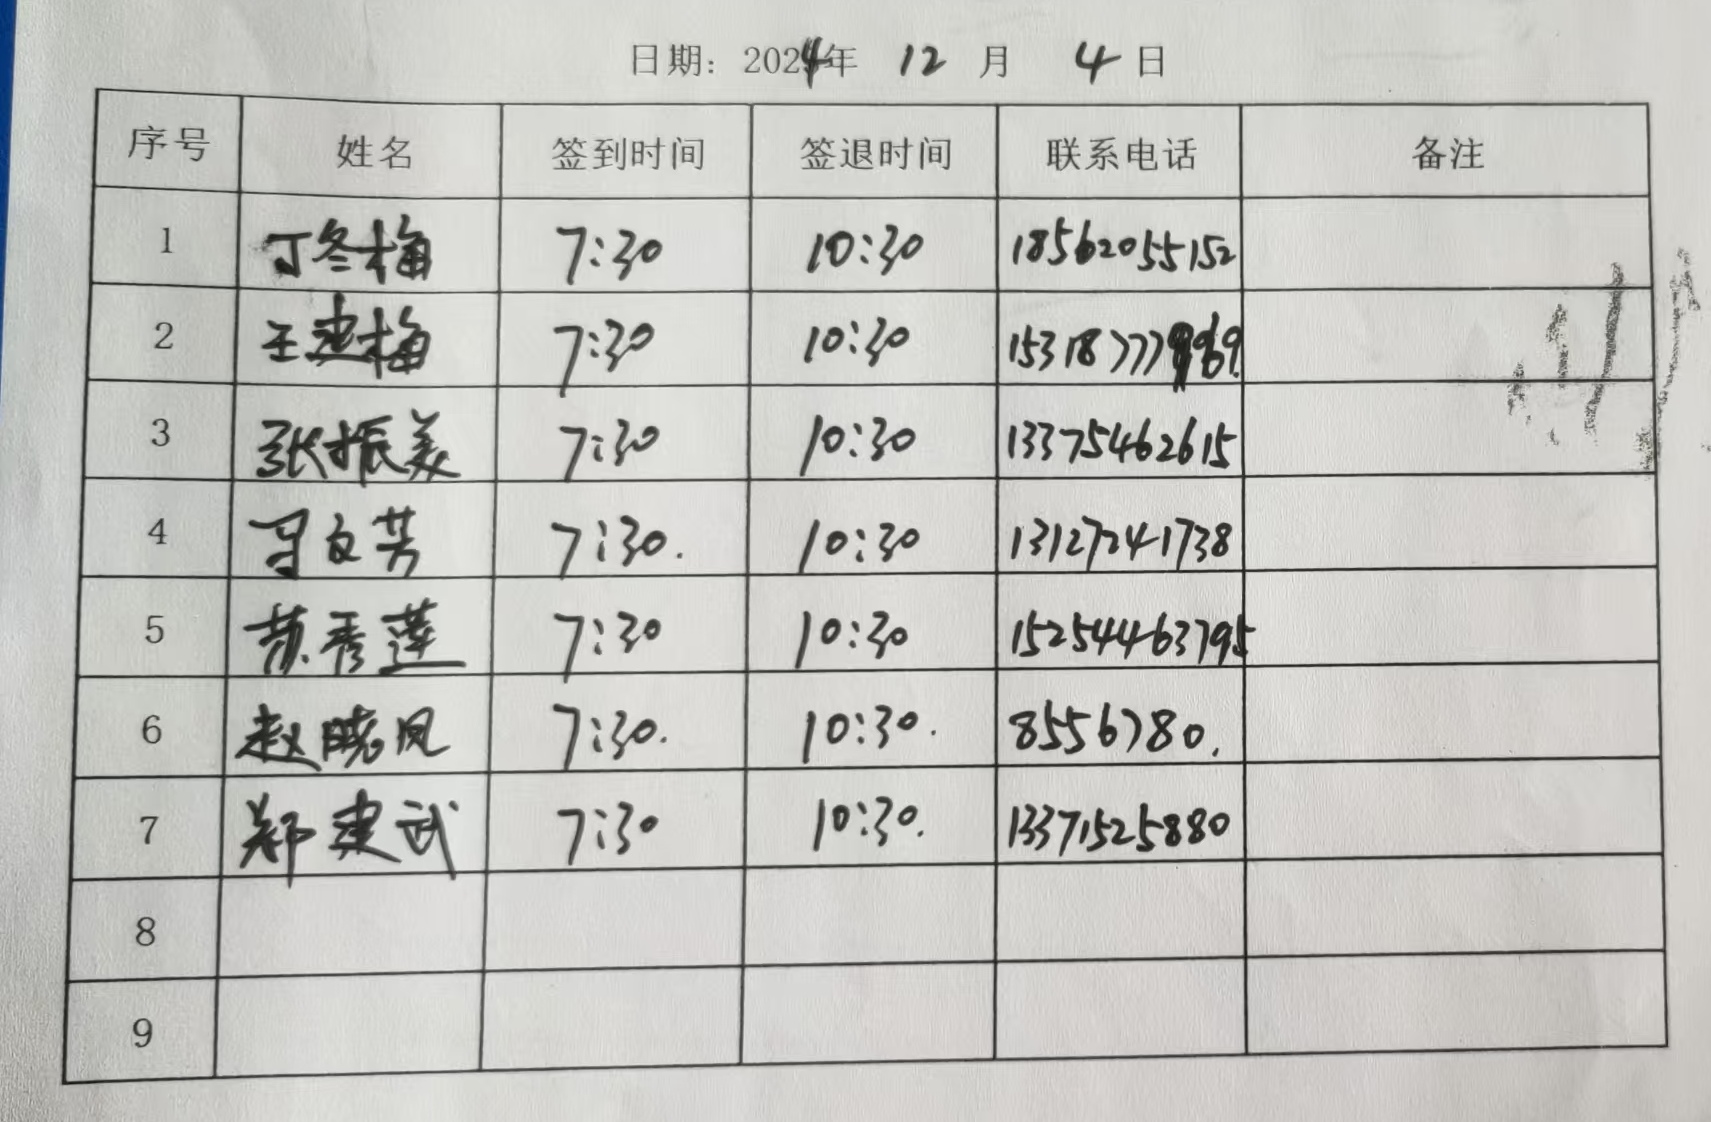 日期: 2024年 12 月 4 日
序号 姓名 签到时间 签退时间 联系电话 备注
1 丁冬梅 7:30 10:30 18562055152
2 王建梅 7:30 10:30
3 张振美 7:30 10:30 13375462615
4 马文芳 7:30. 10:30 13127241738
5 苏秀莲 7:30 10:30 15254463795
6 赵晓凤 7:30. 10:30. 8556780.
7 郑建武 7:30 10:30. 13371525880
8
9